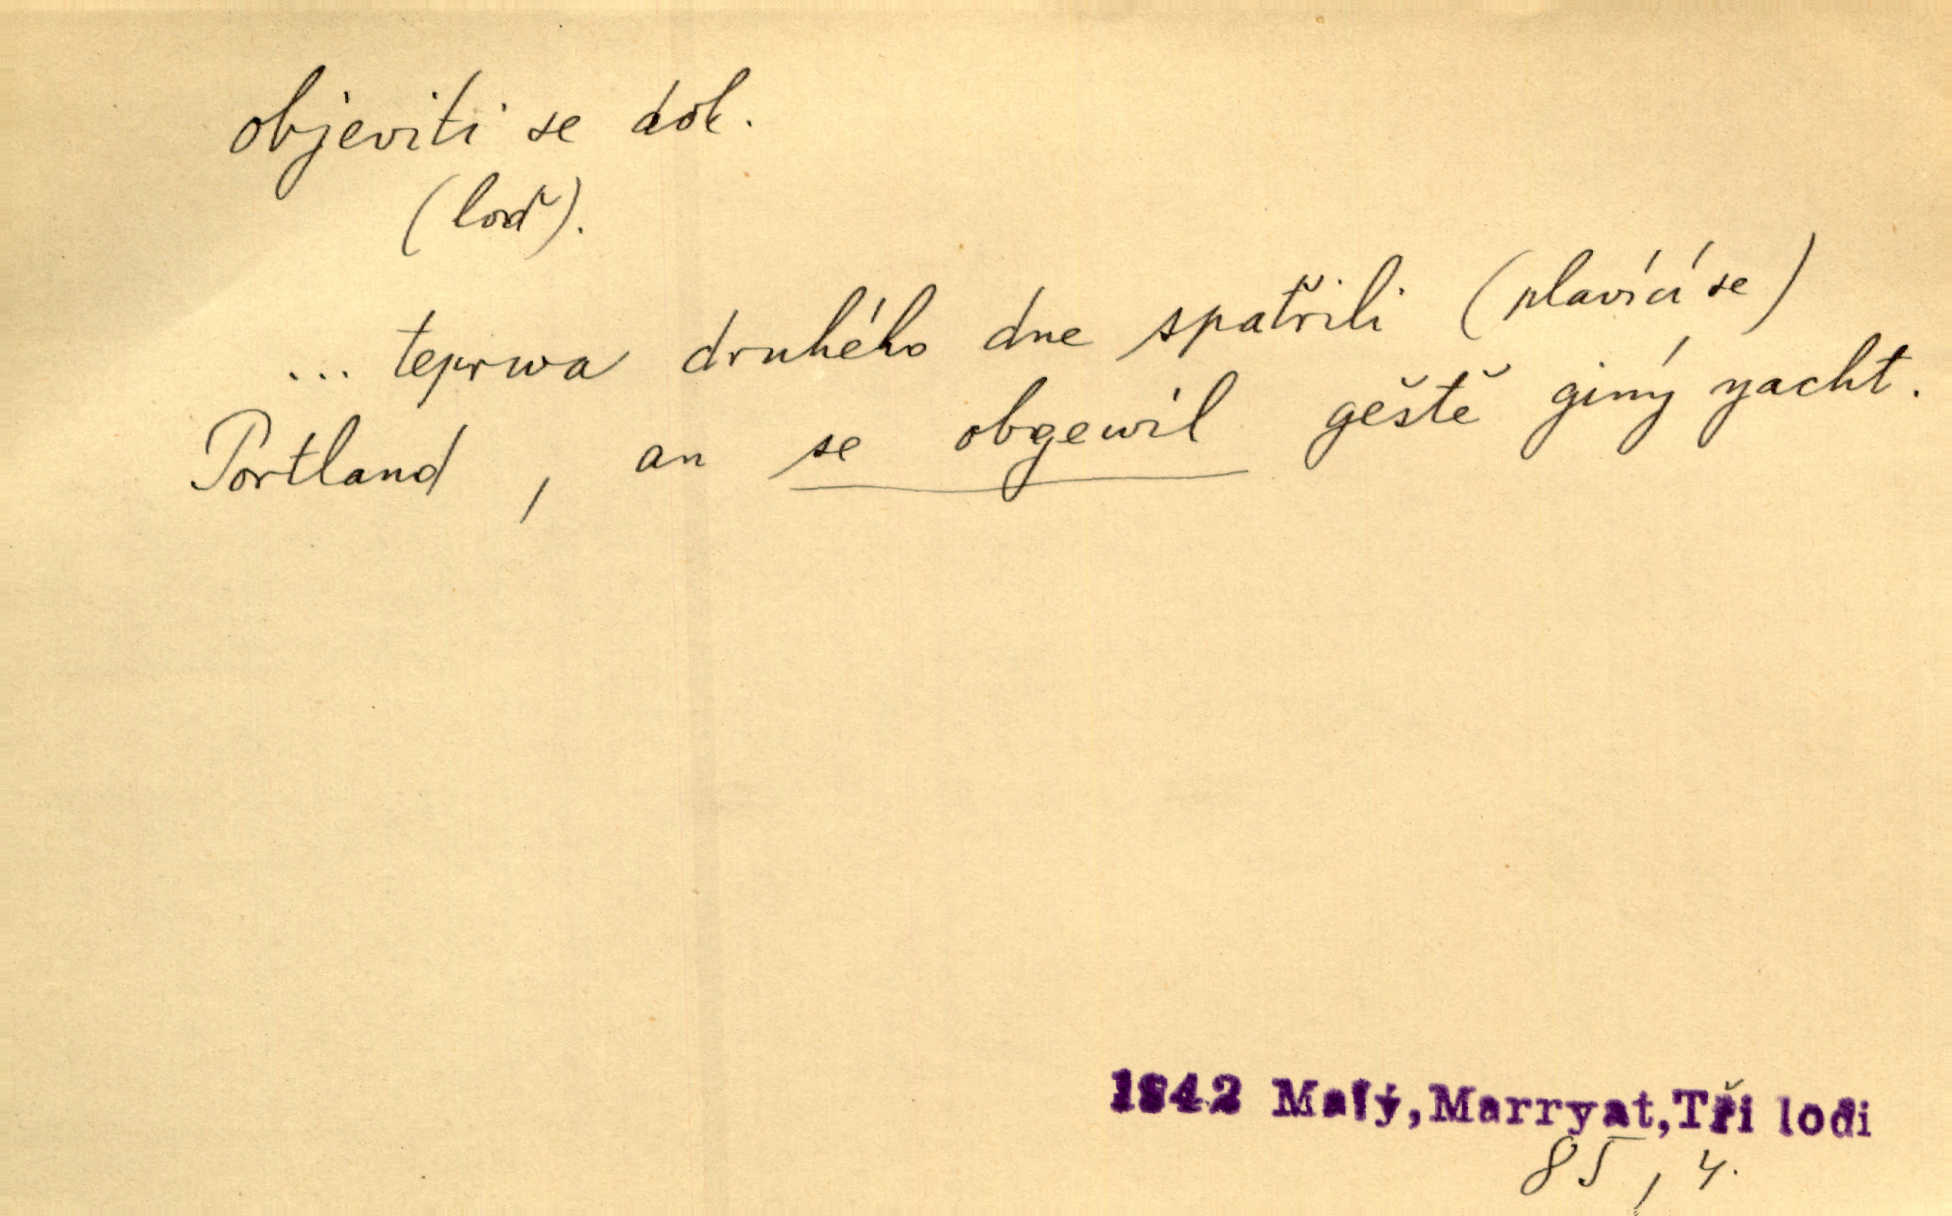 objeviti se dok.
(loď).
... teprwa druhého dne spatřili (plavící se)
Portland, an se obgewil gěště giný yacht.
1842 Malý,Marryat,Tři lodi
85, 4.